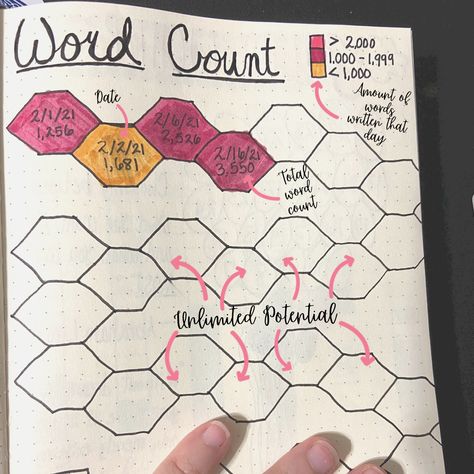 Word Count
> 2,000
1,000 - 1,999
< 1,000
Date
Amount of
words
written that
day
2/1/21
1,256
2/2/21
1,681
2/6/21
2,526
2/16/21
3,550
Total
word
count
Unlimited Potential